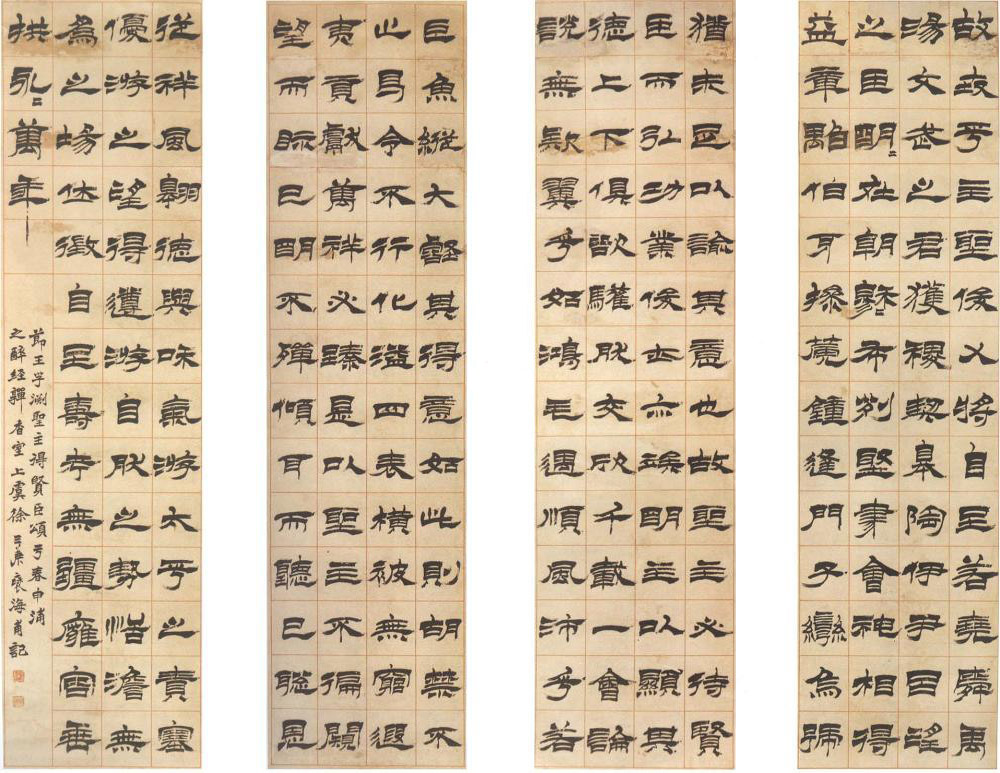 故世平主聖俊乂將自至若堯舜禹
湯文武之君獲稷契皋陶伊尹呂望
之臣明〻在朝穆〻布列聚精會神相得
益章雖伯牙操遞鍾逢門子彎烏號
猶未足以諭其意也故聖主必待賢
臣而弘功業俊士亦俟明主以顯其
德上下俱欲驩然交欣千載一會論
說無疑翼乎如鴻毛遇順風沛乎若
巨魚縱大壑其得意如此則胡禁不
止曷令不行化溢四表橫被無窮遐
夷貢獻萬祥必臻是以聖主不徧闚
望而視已明不殫傾耳而聽已聰恩
從祥風翱德與和氣游太平之責塞
優游之望得遵游自然之勢恬澹無
為之場休徵自至壽考無疆雍容垂
拱永〻萬年
節王子淵聖主得賢臣頌于春申浦
之醉經室上虞徐三庚褎海甫記